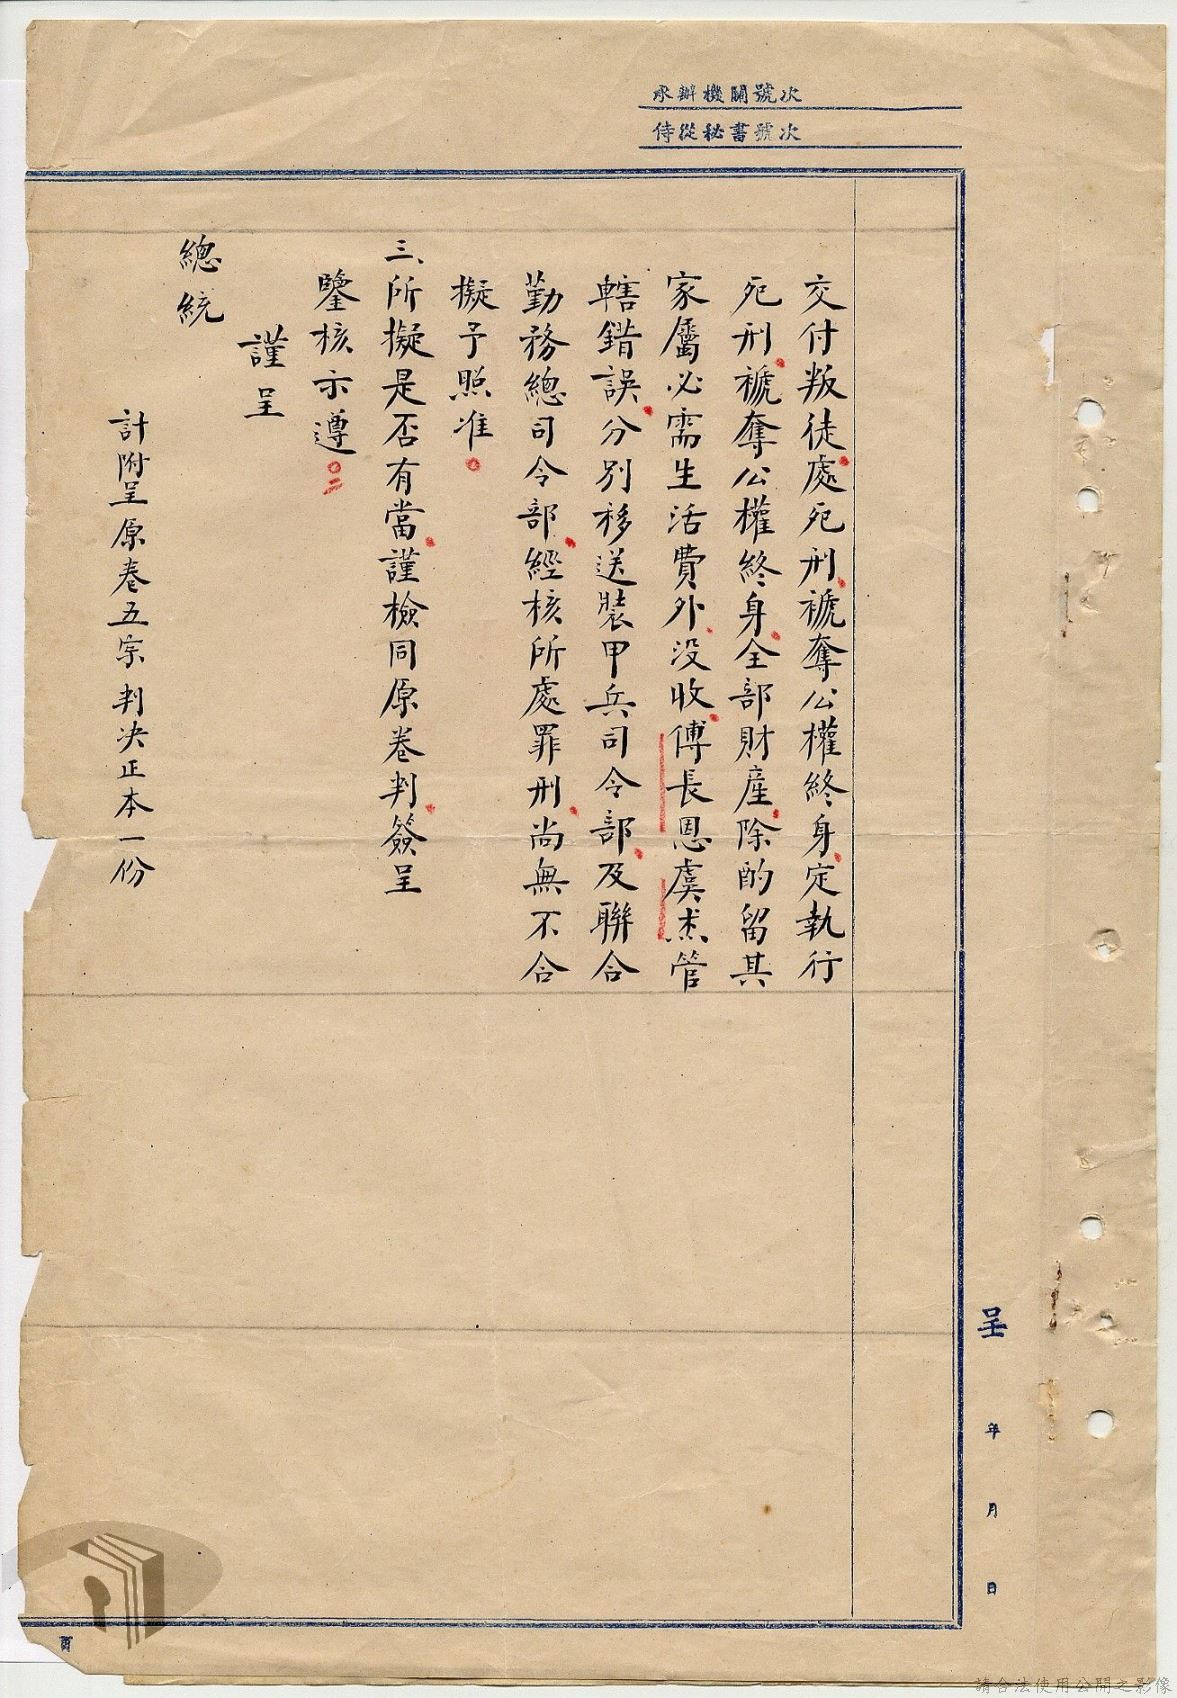 承辦機關號次
侍從秘書號次
呈
年 月 日
交付叛徒處死刑褫奪公權終身定執行
死刑褫奪公權終身全部財產除酌留其
家屬必需生活費外沒收傅長恩虞杰管
轄錯誤分別移送裝甲兵司令部及聯合
勤務總司令部經核所處罪刑尚無不合
擬予照准
三、所擬是否有當謹檢同原卷判簽呈
鑒核示遵
謹呈
總統
計附呈原卷五宗判決正本一份
請合法使用公開之影像